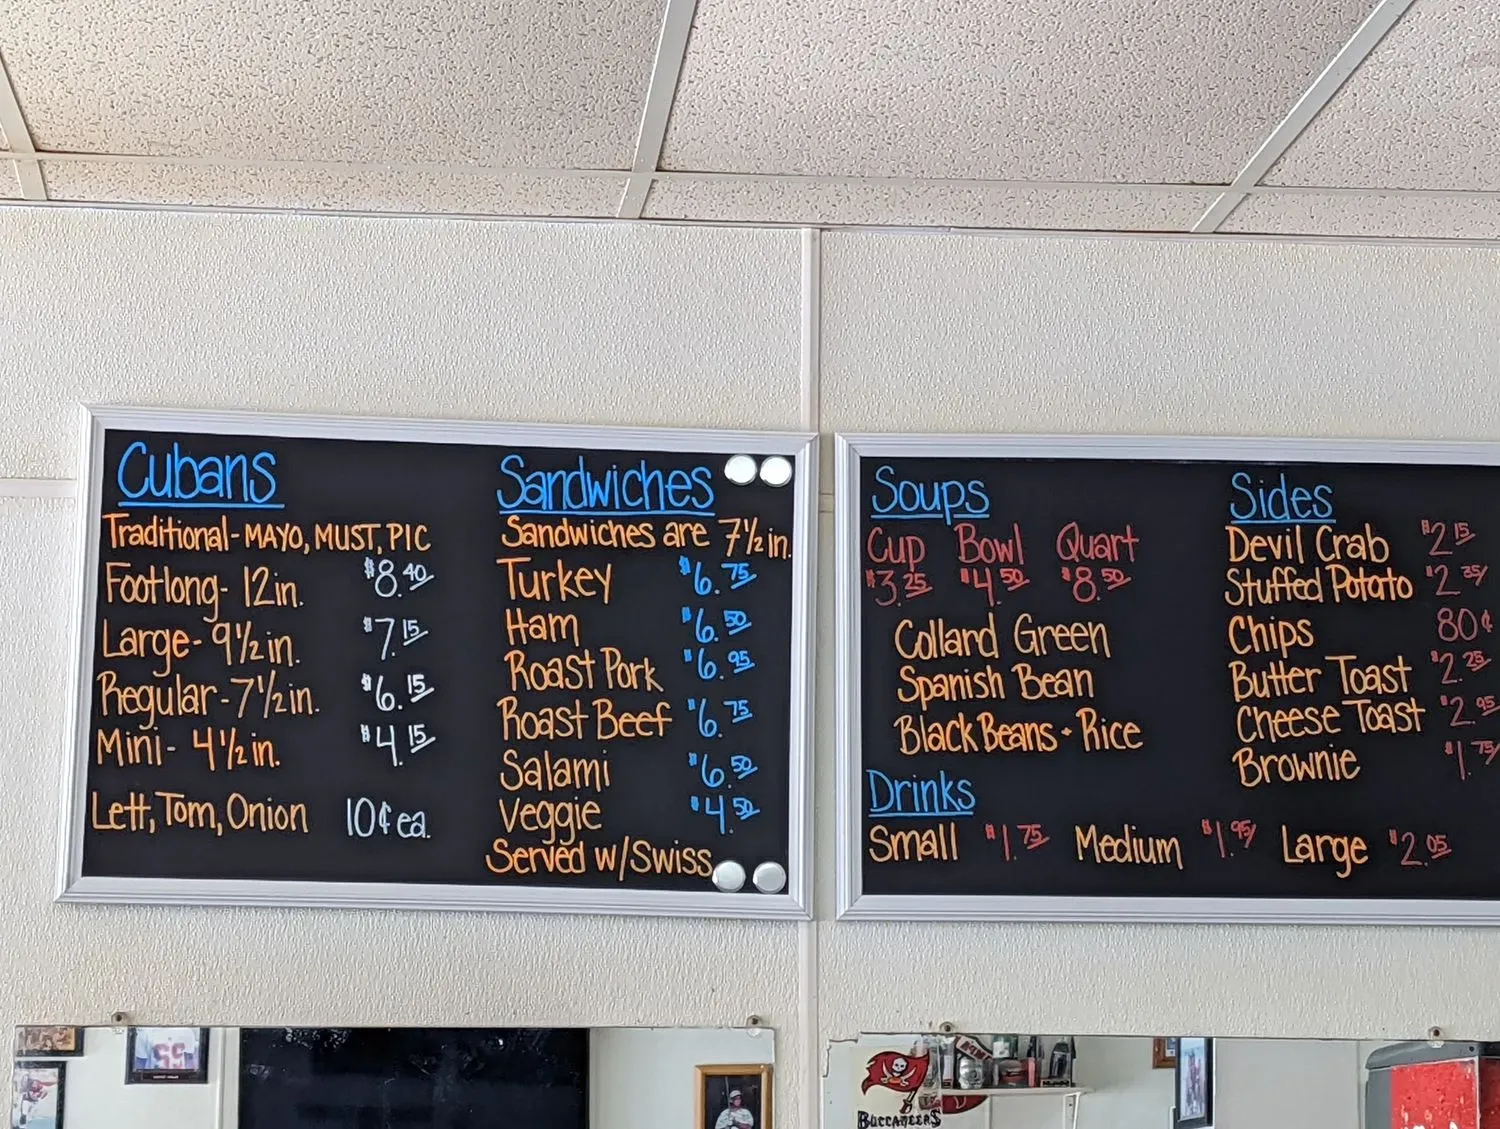 Cubans
Traditional - MAYO, MUST, PIC
Footlong - 12in. $8.40
Large - 9 1/2 in. $7.15
Regular - 7 1/2 in. $6.15
Mini - 4 1/2 in. $4.15
Lett, Tom, Onion 10¢ ea.
Sandwiches
Sandwiches are 7 1/2 in.
Turkey $6.75
Ham $6.50
Roast Pork $6.95
Roast Beef $6.75
Salami $6.50
Veggie $4.50
Served w/Swiss
Soups
Cup Bowl Quart
$3.25 $4.50 $8.50
Collard Green
Spanish Bean
Black Beans - Rice
Drinks
Small $1.75 Medium $1.95 Large $2.05
Sides
Devil Crab $2.15
Stuffed Potato $2.35
Chips 80¢
Butter Toast $2.25
Cheese Toast $2.95
Brownie $1.75
55
BUCCANEERS